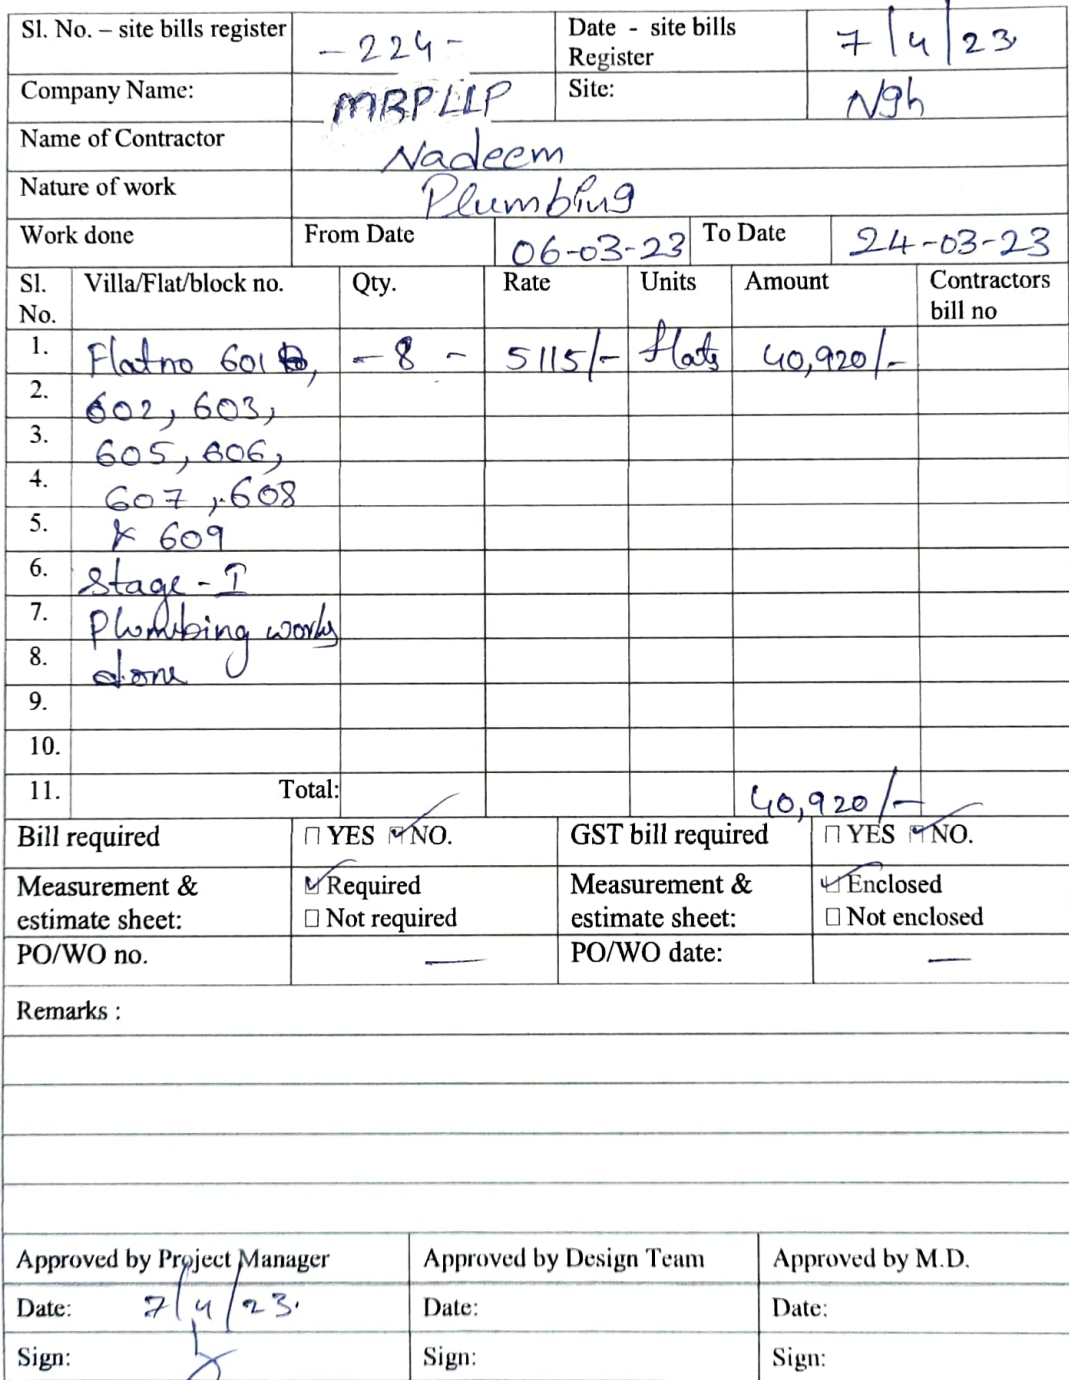 Sl. No. – site bills register - 224 - Date - site bills Register 7/4/23
Company Name: MRPLLP Site: Ngh
Name of Contractor Nadeem
Nature of work Plumbing
Work done From Date 06-03-23 To Date 24-03-23
Sl. No. Villa/Flat/block no. Qty. Rate Units Amount Contractors bill no
1. Flat no 601, - 8 - 5115/- flats 40,920/-
2. 602, 603,
3. 605, 606,
4. 607, 608
5. & 609
6. Stage - I
7. Plumbing works
8. done
9.
10.
11. Total: 40,920/-
Bill required YES NO. GST bill required YES NO.
Measurement & estimate sheet: Required Not required Measurement & estimate sheet: Enclosed Not enclosed
PO/WO no. — PO/WO date: —
Remarks :
Approved by Project Manager Approved by Design Team Approved by M.D.
Date: 7/4/23. Date: Date:
Sign: Sign: Sign: